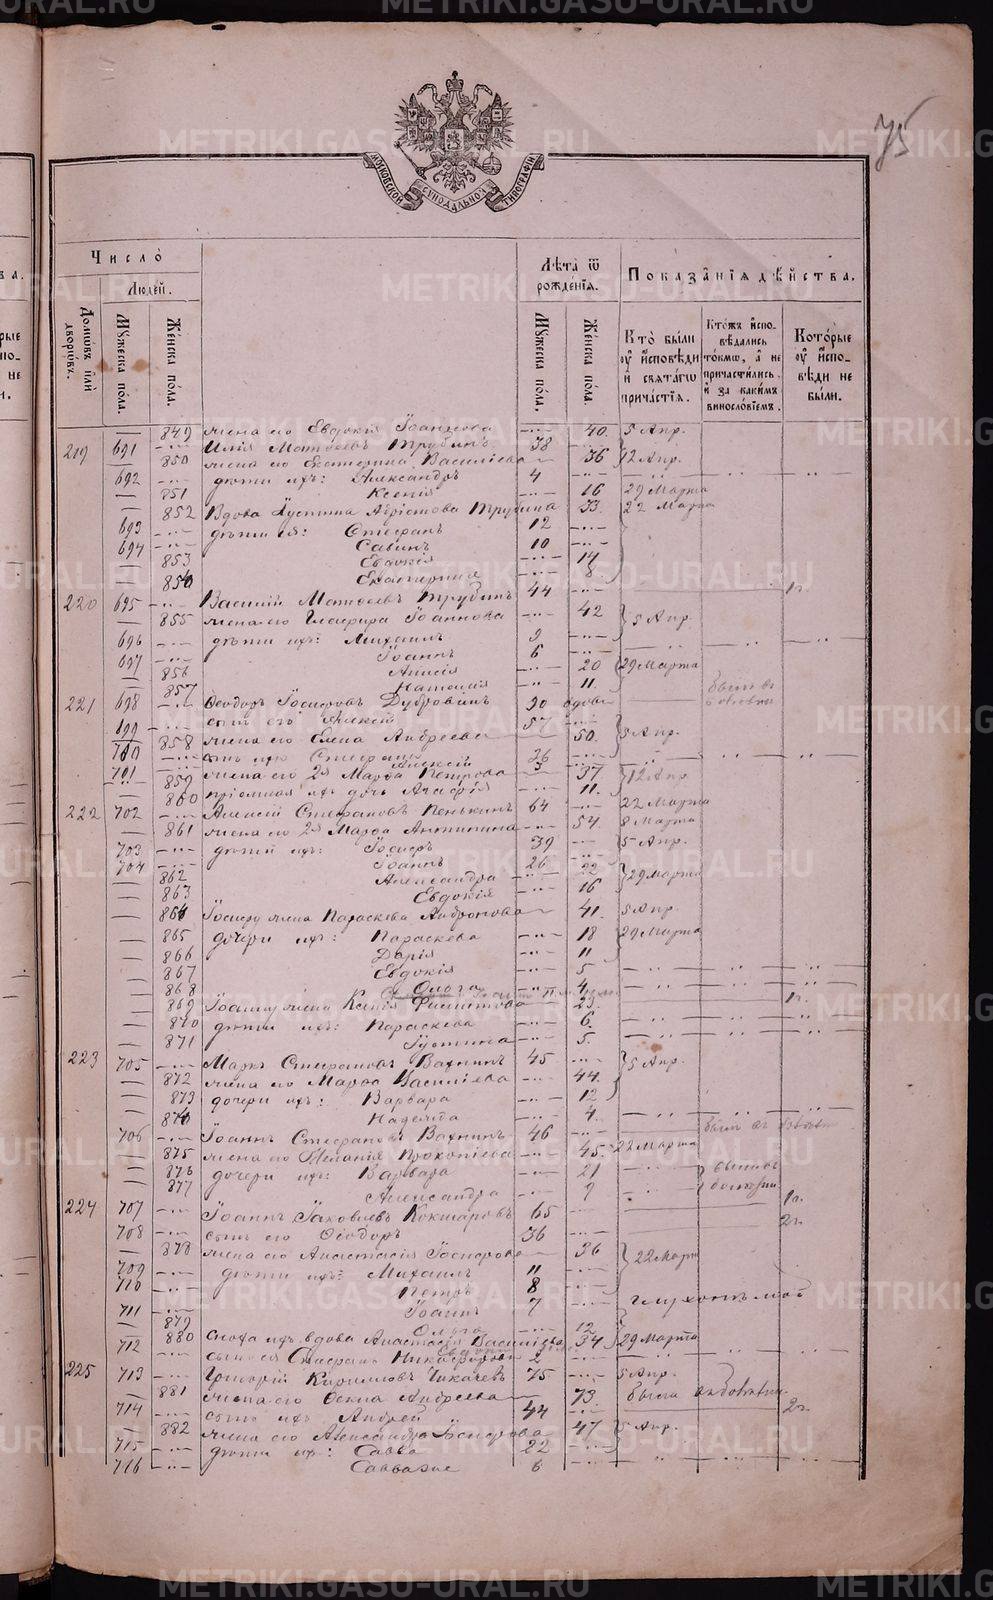 75
МОСКОВСКОЙ СУНОДАЛЬНОЙ ТИПОГРАФІИ
Число
Людей.
Лѣта ѿ рожденїѧ.
Показанїѧ дѣйства.
Домѡвъ или дворѡвъ.
Мꙋжеска пола.
Женска пола.
Мꙋжеска пола.
Женска пола.
Кто были ᲂу исповѣди и свѧтагѡ причастїѧ.
Ктожъ исповѣдались токмѡ, а не причастились, и за какимъ винословїемъ.
Которые ᲂу исповѣди не были.
849 жена его Евдокія Іоаннова 40 5 Апр.
219 691 Илія Матвеевъ Трубинъ 38
850 жена его Екатерина Василіева 36 12 Апр.
692 дѣти ихъ: Александръ 4
851 Ксенія 16 29 Марта
852 Вдова Іустина Трубина 33 22 Марта
693 дѣти ея: Стефанъ 12
694 Савинъ 10
853 Евдокія 14
854 Екатерина 8
220 695 Василій Матвеевъ Трубинъ 44 1 г.
855 жена его Глафира Іоаннова 42 5 Апр.
696 дѣти ихъ: Михаилъ 9
697 Іоаннъ 6
856 Анисія 20 29 Марта
857 Наталія 11
221 698 Ѳеодоръ Іосифовъ Дубровинъ 90 вдовъ
699 сынъ его Алексій 57
858 жена его Елена Андреева 50 5 Апр.
700 сынъ ихъ Стефанъ 36
701 Алексій 3
859 жена его 2я Марѳа Петрова 37 12 Апр
860 пріемная ихъ дочь Агафія 11
222 702 Алексій Стефановъ Пенькинъ 64 22 Марта
861 жена его 2я Марѳа Антипина 54 8 Марта
703 дѣти ихъ: Іосифъ 39 5 Апр.
704 Іоаннъ 26
862 Александра 22 29 Марта
863 Евдокія 16
864 Іосифу жена Параскева Андронова 41 5 Апр.
865 дочери ихъ: Параскева 18 29 Марта
866 Дарія 11
867 Евдокія 5
868 Ольга 4
869 Іоанну жена Ксенія 23 1 г.
870 дѣти ихъ: Параскева 6
871 Іустина 5
223 705 Маркъ Стефановъ Вахнинъ 45 5 Апр.
872 жена его Марѳа Василіева 44
873 дочери ихъ: Варвара 12
874 Надежда 4
706 Іоаннъ Стефановъ Вахнинъ 46
875 жена его Меланія Прокопіева 45 22 Марта
876 дочери ихъ: Варвара 21
877 Александра 9 1 г.
224 707 Іоаннъ Іаковлевъ Кокшаровъ 65 2 г.
708 сынъ его Ѳеодоръ 36
878 жена его Анастасія Іосифова 36 22 Март
709 дѣти ихъ: Михаилъ 11
710 Петръ 8
711 Іоаннъ 7
879 Ольга 12
880 сноха ихъ вдова Анастасія Василіева 34 29 Марта
712 сынъ ея Стефанъ Никифоровъ 2
225 713 Григорій Кириловъ Чикачевъ 75 5 Апр.
881 жена его Ѳекла Андреева 73
714 сынъ ихъ Андрей 44 2 г.
882 жена его Александра Іосифова 47 5 Апр.
715 дѣти ихъ: Савва 22
716 6
METRIKI.GASO-URAL.RU